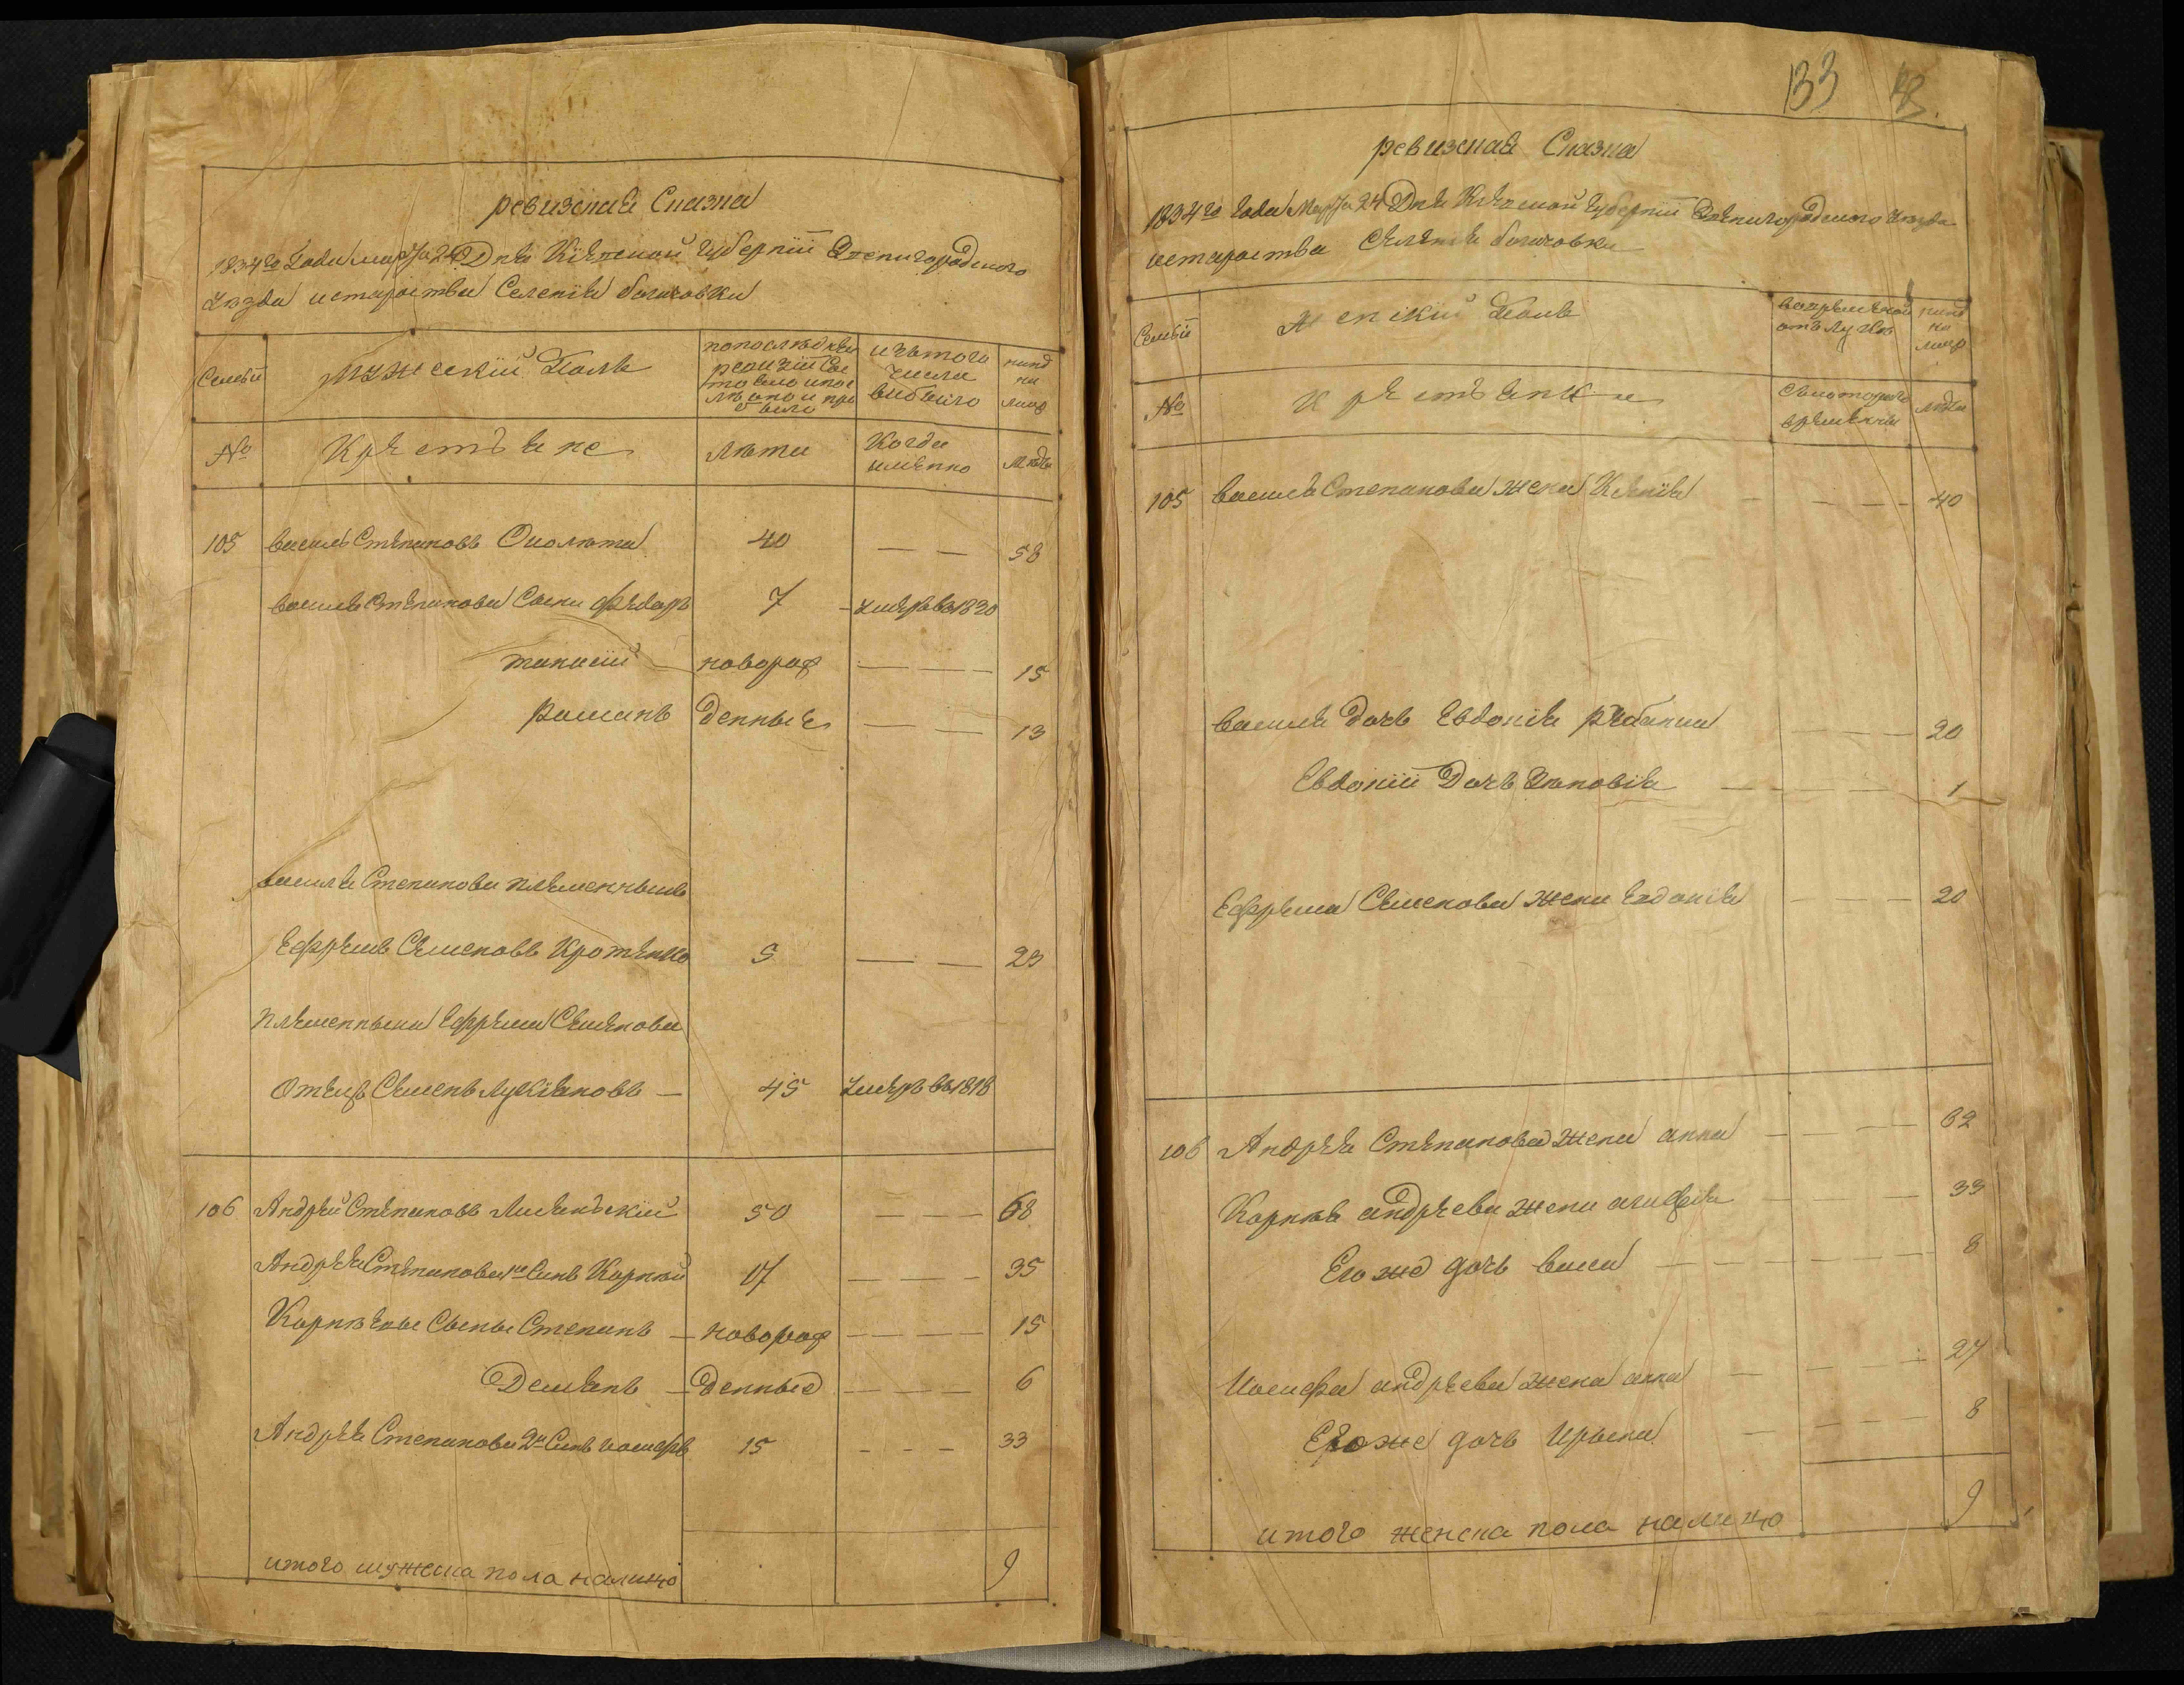 ревизская Сказка
1834го Года марта 24 Дня Кіевской губерніи Звенигородского
уезда староства Селенія
Семьи
Мужескій Полъ
По последней ревизіи состояло и после оно и прибыло
Изъ того числа выбыло
Ныне на лицо
№
Крестьяне
Лета
Когда именно
Лета
105 василь Степановъ 40 — — 58
василя Степанова Сыны федоръ 7 — умеръ въ 1820
новорож — — 15
Романъ денные — — 13
василя Степанова племенныкъ
Ефремъ Семеновъ 5 — — 23
племенныка Ефрема Семенова
Отецъ Семенъ Лукіяновъ — 45 умеръ въ 1818
106 Андрей Степановъ 50 — — — 68
Андрея Степанова 1й Синъ Корней 17 — — — 35
Корнея Сыны Степанъ — новорож — — — — 15
Демянъ — денные — — — — 6
Андрея Степанова 2й Синъ иосифъ 15 — — — 33
итого мужеска пола налицо 9
133
ревизская Сказка
1834го Года Марта 24 Дня Кіевской Губерніи Звенигородского уезда
староства Селенія
Семьи
Женскій Полъ
Во временной отлучке
Ныне на лицо
№
Крестьянки
Съ которого времени
Лета
105 василя Степанова жена — — — — 40
василя дочь Евдокія — — — 20
Евдокіи Дочь — — — — 1
Ефрема Семенова жена Евдокія — — — 20
106 Андрея Степанова жена анна — — — 62
Корнея андреева жена агафія — — — 33
Его же дочь васса — — — — 8
Иосифа андреева жена анна — — — — 27
Его же дочь Ирына — — — — 8
итого женска пола налицо 9